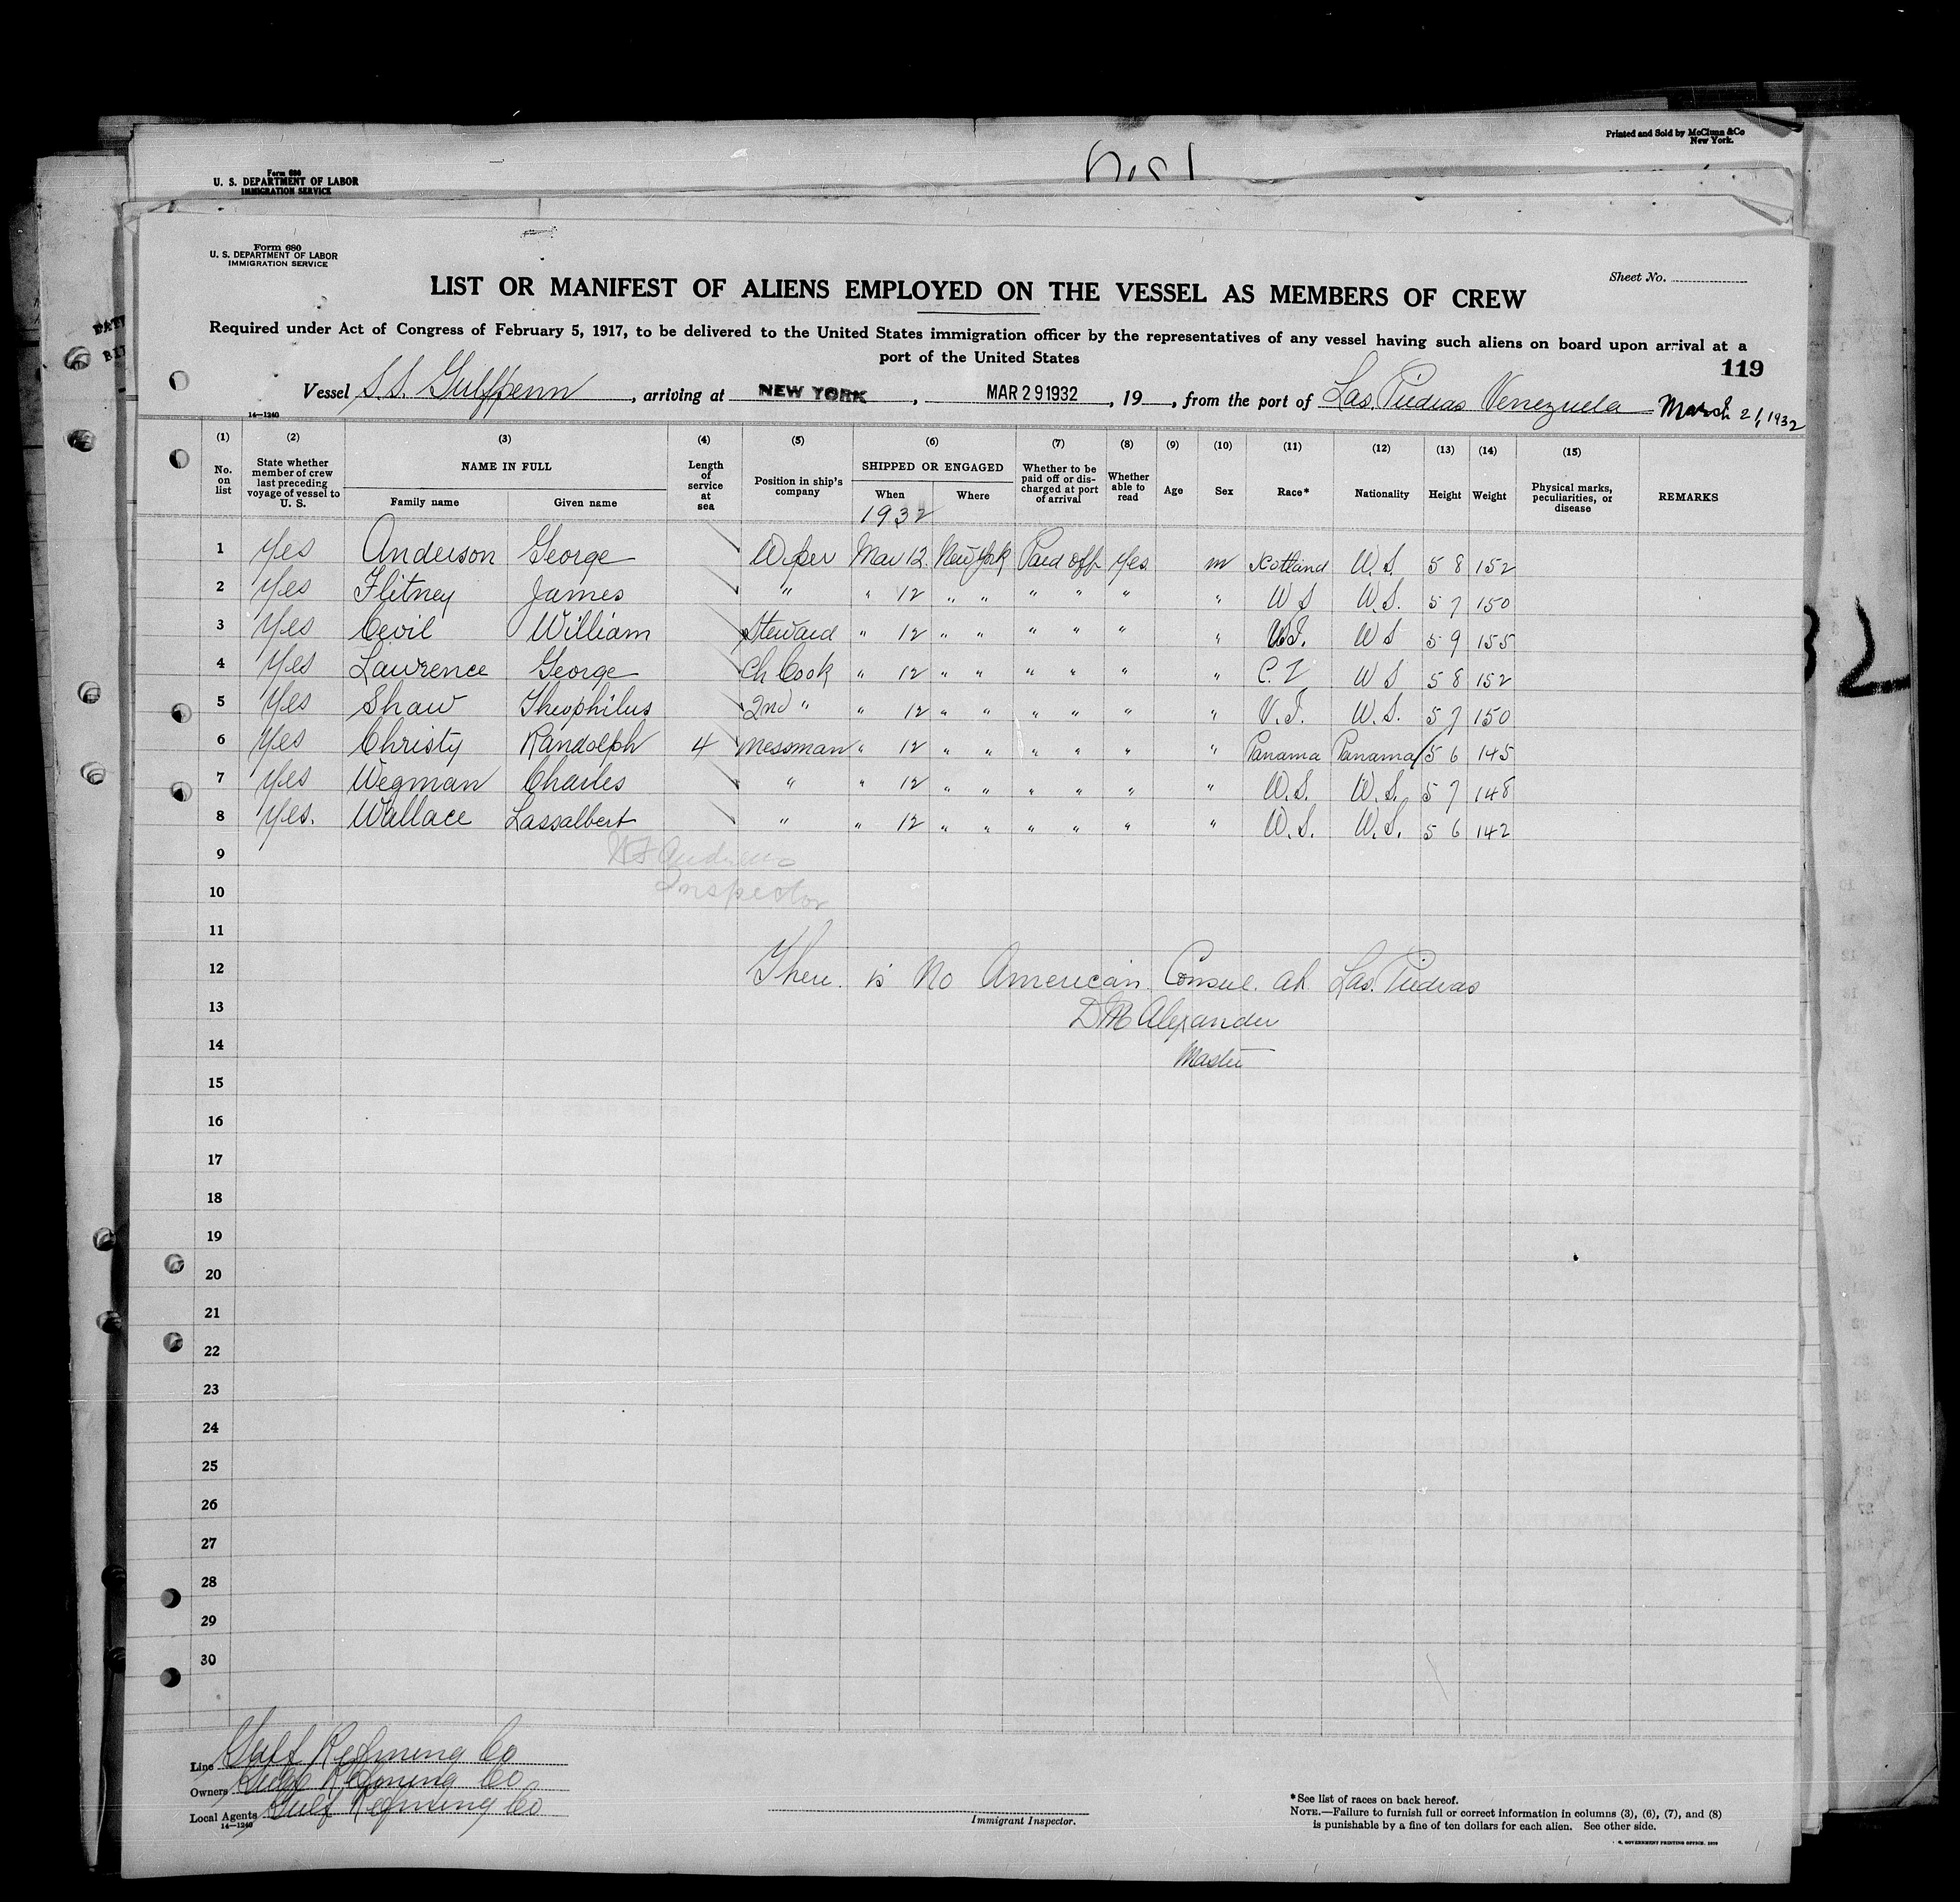 Printed and Sold by McClunn & Co
New York.
Form 686
U. S. DEPARTMENT OF LABOR
IMMIGRATION SERVICE
Form 680
U. S. DEPARTMENT OF LABOR
IMMIGRATION SERVICE
Sheet No.
LIST OR MANIFEST OF ALIENS EMPLOYED ON THE VESSEL AS MEMBERS OF CREW
Required under Act of Congress of February 5, 1917, to be delivered to the United States immigration officer by the representatives of any vessel having such aliens on board upon arrival at a
port of the United States
119
Vessel S.S. Gulfpenn, arriving at NEW YORK, MAR 29 1932, 19, from the port of Las Piedras Venezuela March 21, 1932
14—1240
(1) (2) (3) (4) (5) (6) (7) (8) (9) (10) (11) (12) (13) (14) (15)
No. on list State whether member of crew last preceding voyage of vessel to U. S. NAME IN FULL Family name Given name Length of service at sea Position in ship's company SHIPPED OR ENGAGED When Where Whether to be paid off or discharged at port of arrival Whether able to read Age Sex Race* Nationality Height Weight Physical marks, peculiarities, or disease REMARKS
1932
1 Yes Anderson George Wiper Mar 12 New York Paid off Yes m Scotland U.S. 5 8 152
2 Yes Flitney James " " 12 " " " " " " U S U.S. 5 7 150
3 Yes Cevil William Steward " 12 " " " " " " U S 5 9 155
4 Yes Lawrence George Ch Cook " 12 " " " " " " U S 5 8 152
5 Yes Shaw Theophilus 2nd " " 12 " " " " " " V.I. U.S. 5 7 150
6 Yes Christy Randolph 4 Messman " 12 " " " " " " Panama Panama 5 6 145
7 Yes Wegman Charles " " 12 " " " " " " U.S. U.S. 5 7 148
8 Yes. Wallace Lassalbert " " 12 " " " " " " U.S. U.S. 5 6 142
9
10 Inspector
11
12 There is no American Consul at Las Piedras
13 D M Alexander
14 Master
15
16
17
18
19
20
21
22
23
24
25
26
27
28
29
30
Line Gulf Refining Co
Owners Gulf Refining Co
Local Agents Gulf Refining Co
14—1240
Immigrant Inspector.
*See list of races on back hereof.
NOTE.—Failure to furnish full or correct information in columns (3), (6), (7), and (8)
is punishable by a fine of ten dollars for each alien. See other side.